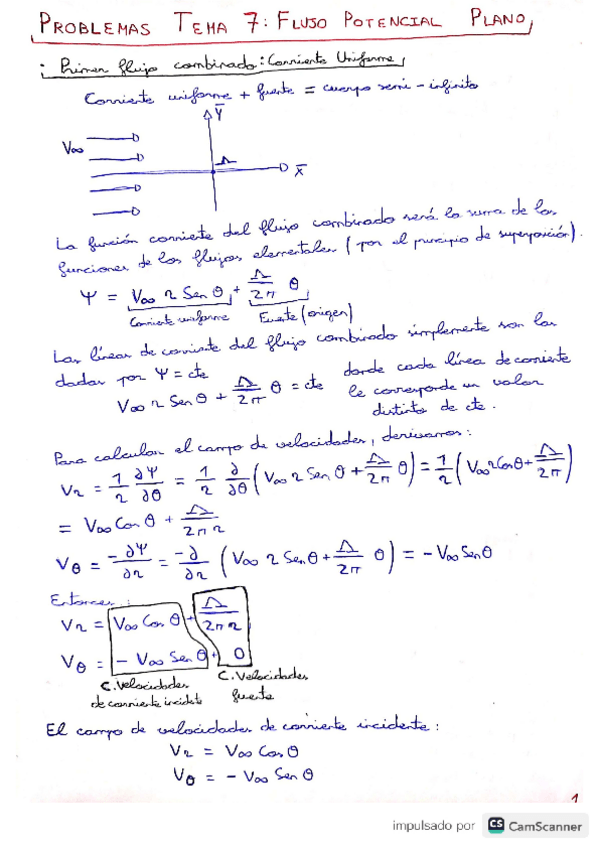 PROBLEMAS TEMA 7: FLUJO POTENCIAL PLANO
· Primer flujo combinado: Corriente Uniforme
Corriente uniforme + fuente = cuerpo semi-infinito
Ȳ
V∞
Λ
X̄
La función corriente del flujo combinado será la suma de las
funciones de los flujos elementales (por el principio de superposición).
Ψ = V∞ r Sen θ + Λ/2π θ
Corriente uniforme Fuente (origen)
Las líneas de corriente del flujo combinado simplemente son las
dadas por Ψ = cte donde cada línea de corriente
V∞ r Sen θ + Λ/2π θ = cte le corresponde un valor
distinto de cte.
Para calcular el campo de velocidades, derivamos:
Vr = 1/r ∂Ψ/∂θ = 1/r ∂/∂θ (V∞ r Sen θ + Λ/2π θ) = 1/r (V∞ r Cos θ + Λ/2π)
= V∞ Cos θ + Λ/2πr
Vθ = -∂Ψ/∂r = -∂/∂r (V∞ r Sen θ + Λ/2π θ) = - V∞ Sen θ
Entonces:
Vr = V∞ Cos θ + Λ/2πr
Vθ = - V∞ Sen θ + 0
C. Velocidades C. Velocidades
de corriente incidente fuente
El campo de velocidades de corriente incidente:
Vr = V∞ Cos θ
Vθ = - V∞ Sen θ
1
impulsado por CS CamScanner